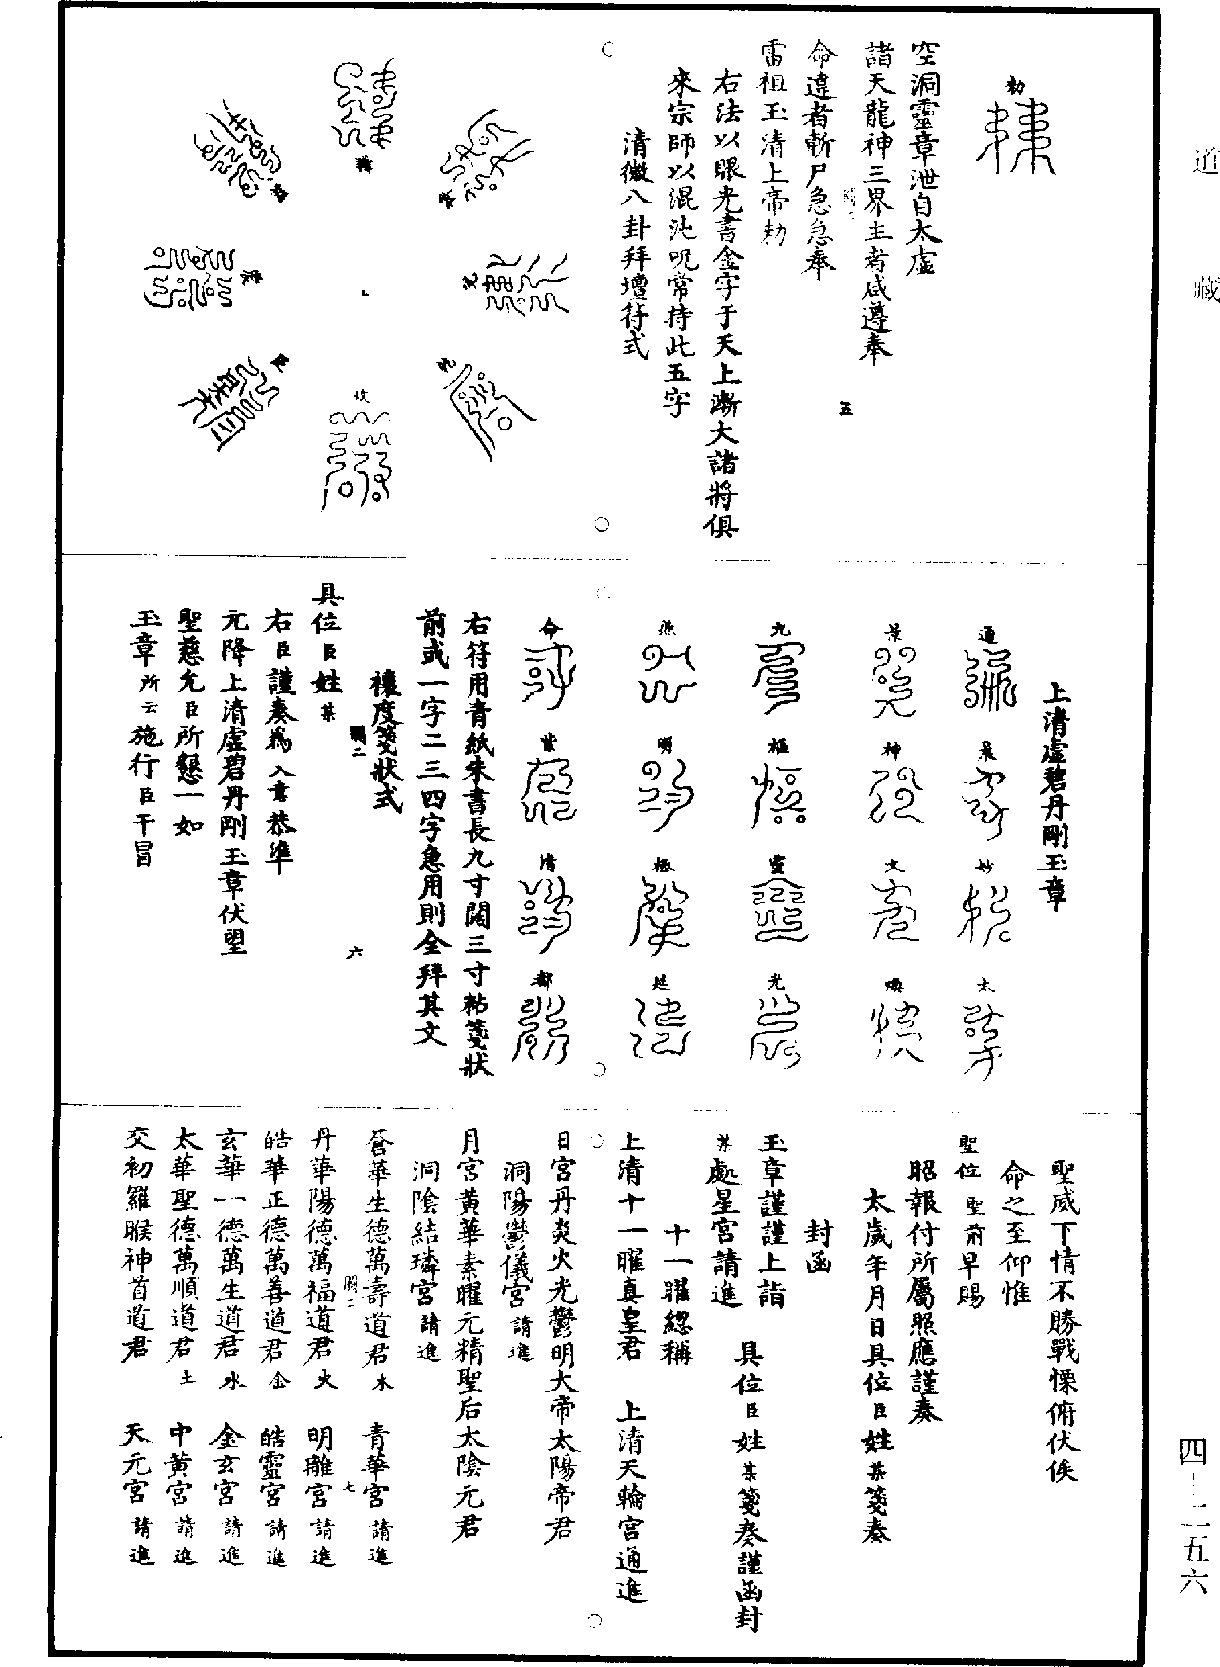 道藏
四—二五六
勑
空洞靈章泄自太虛
諸天龍神三界主者咸遵奉
命違者斬尸急急奉
五
雷祖玉清上帝勑
右法以眼光書金字于天上漸大諸將俱
來宗師以混沌呪常持此五字
清微八卦拜壇符式
上清虛碧丹剛玉章
通 景 妙 太
景 神 文 喚
九 極 靈 光
明 極 廷
命 紫 清 都
右符用青紙朱書長九寸闊三寸粘箋狀
前或一字二三四字急用則全拜其文
禳度箋狀式
六
具位臣姓某
右臣謹奏爲入意恭準
元降上清虛碧丹剛玉章伏望
聖慈允臣所懇一如
玉章所云施行臣干冒
聖威下情不勝戰慄俯伏俟
命之至仰惟
聖位 聖前早賜
昭報付所屬照應謹奏
太歲年月日具位臣姓某箋奏
封函
玉章謹謹上詣 具位臣姓某箋奏謹函封
某處星宮請進
十一曜總稱
上清十一曜真皇君 上清天輪宮通進
日宮丹炎火光鬱明大帝太陽帝君
洞陽鬱儀宮請進
月宮黃華素曜元精聖后太陰元君
洞陰結璘宮請進
蒼華生德萬壽道君木 青華宮請進
七
丹華陽德萬福道君火 明離宮請進
皓華正德萬善道君金 皓靈宮請進
玄華一德萬生道君水 金玄宮請進
太華聖德萬順道君土 中黃宮請進
交初羅睺神首道君 天元宮請進